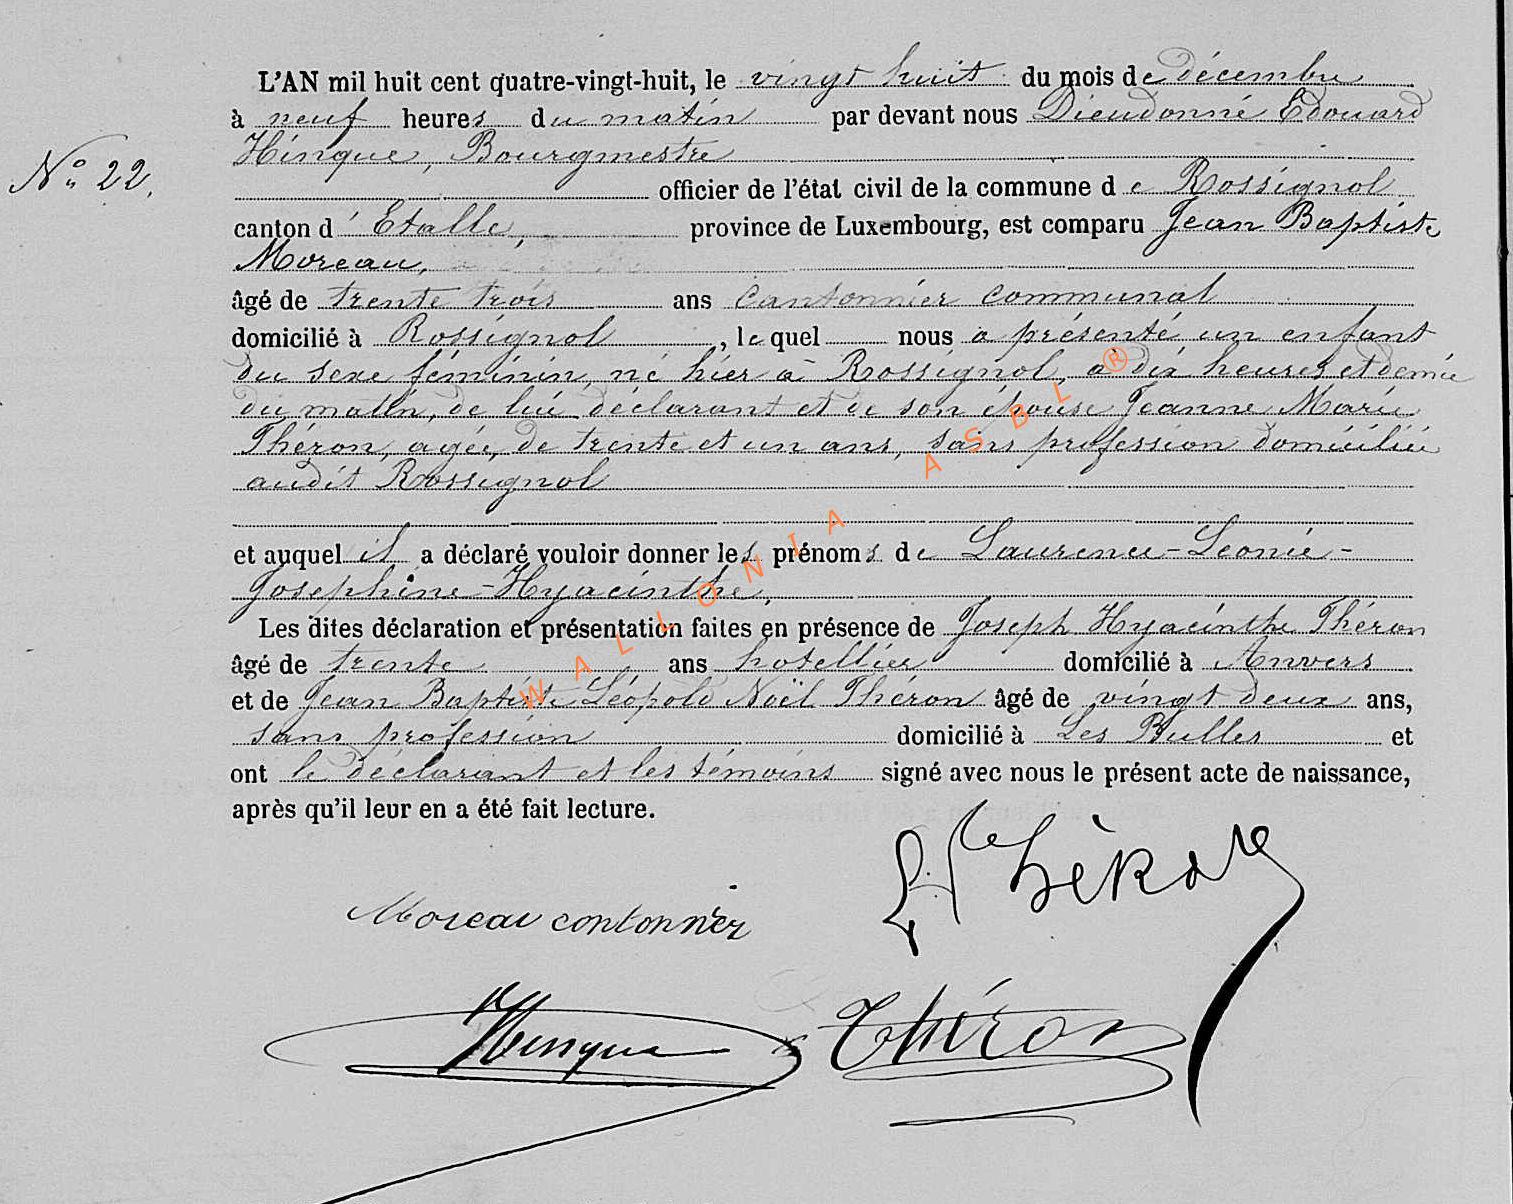 L'AN mil huit cent quatre-vingt-huit, le vingt huit du mois de décembre
à neuf heures du matin par devant nous Dieudonné Edouard
Hinque, Bourgmestre
N° 22.
officier de l'état civil de la commune de Rossignol
canton d'Etalle, province de Luxembourg, est comparu Jean Baptiste
Moreau,
âgé de trente trois ans cantonnier communal
domicilié à Rossignol, lequel nous a présenté un enfant
du sexe féminin, né hier à Rossignol, à dix heures et demie
du matin, de lui déclarant et de son épouse Jeanne Marie
Théron, agée, de trente et un ans, sans profession domiciliée
audit Rossignol
et auquel il a déclaré vouloir donner les prénoms de Laurence-Léonie-
Josephine-Hyacinthe,
Les dites déclaration et présentation faites en présence de Joseph Hyacinthe Théron
âgé de trente ans hotellier domicilié à Anvers
et de Jean Baptiste Léopold Noël Théron âgé de vingt deux ans,
sans profession domicilié à Les Bulles et
ont le déclarant et les témoins signé avec nous le présent acte de naissance,
après qu'il leur en a été fait lecture.
Théron
Moreau contonnier
Hinque Théron
WALLONIA ASBL ®